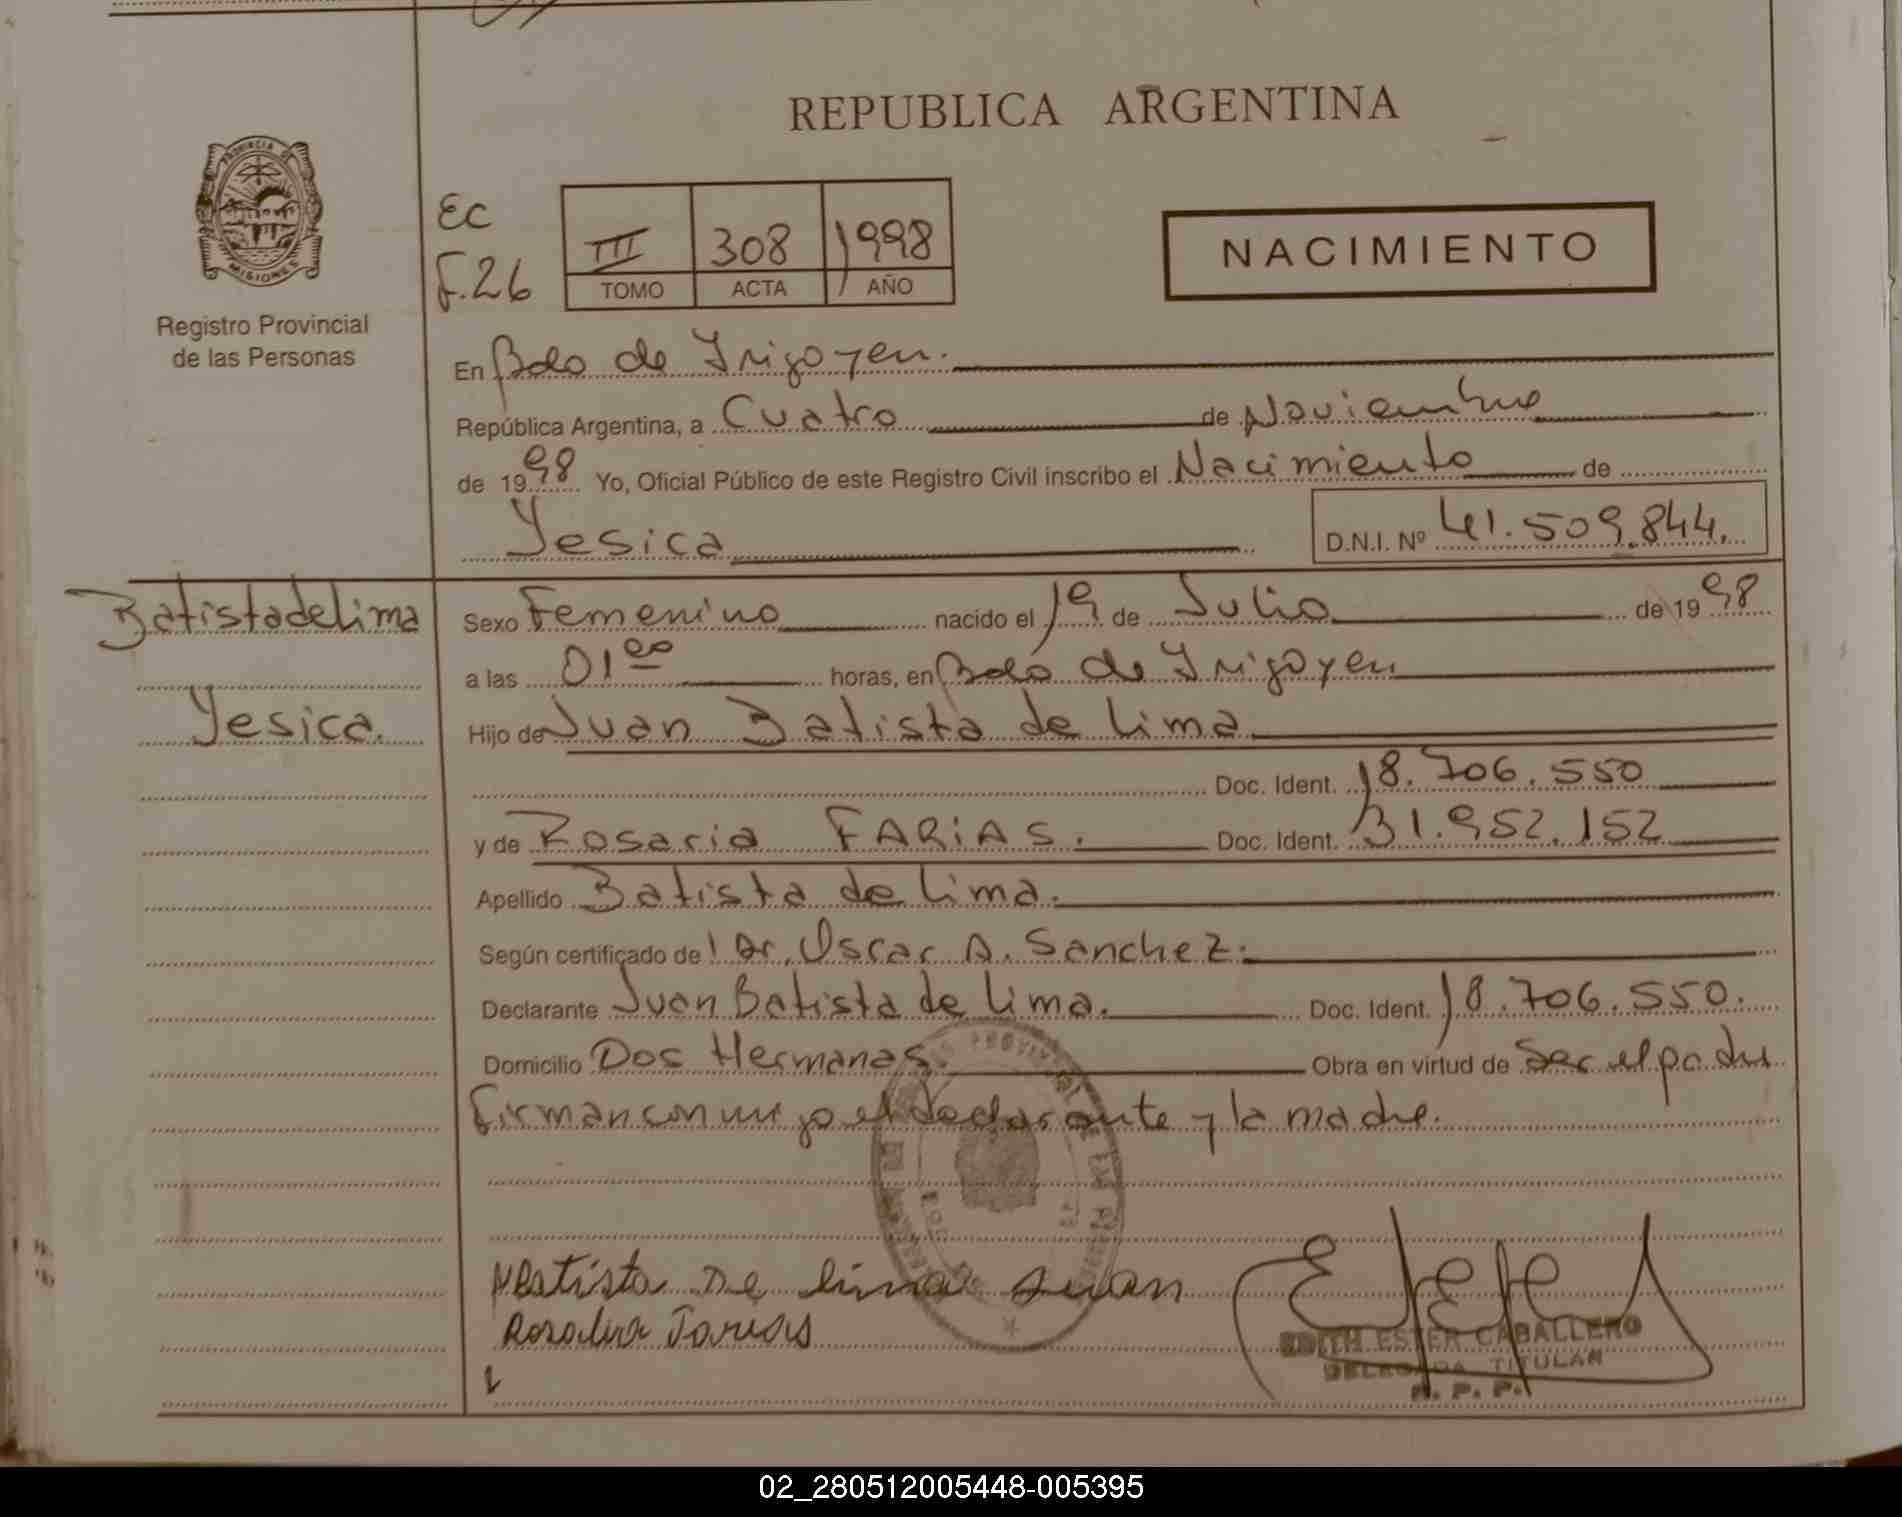 REPUBLICA ARGENTINA
PROVINCIA DE
MISIONES
Registro Provincial
de las Personas
EC
F.26
III 308 1998
TOMO ACTA AÑO
NACIMIENTO
En Bdo de Irigoyen.
República Argentina, a Cuatro de Noviembre
de 1998 Yo, Oficial Público de este Registro Civil inscribo el Nacimiento de
Yesica D.N.I. Nº 41.509.844.
Batista de Lima
Yesica.
Sexo Femenino nacido el 19 de Julio de 1998
a las 01 00 horas, en Bdo de Irigoyen
Hijo de Juan Batista de Lima
Doc. Ident. 18.706.550
y de Rosaria FARIAS. Doc. Ident. 31.952.152
Apellido Batista de Lima.
Según certificado de Dr. Oscar A. Sanchez.
Declarante Juan Batista de Lima. Doc. Ident. 18.706.550.
Domicilio Dos Hermanas. Obra en virtud de Ser el padre
firman conmigo el declarante y la madre.
Batista De Lima Juan
Farias
EDITH ESTER CABALLERO
DELEGADA TITULAR
R. P. P.
02_280512005448-005395